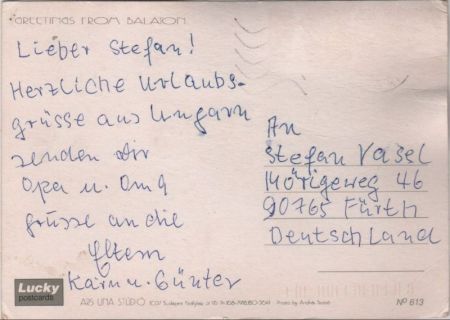 GREETINGS FROM BALATON
Lieber Stefan!
Herzliche Urlaubs-
grüsse aus Ungarn
senden dir
Opa u. Oma
grüsse an die
Eltern
Karin u. Günter
An
Stefan Vasel
90765 Fürth
Deutschland
Lucky
postcards
ARS UNA STÚDIÓ
Photo by András
Nº 613